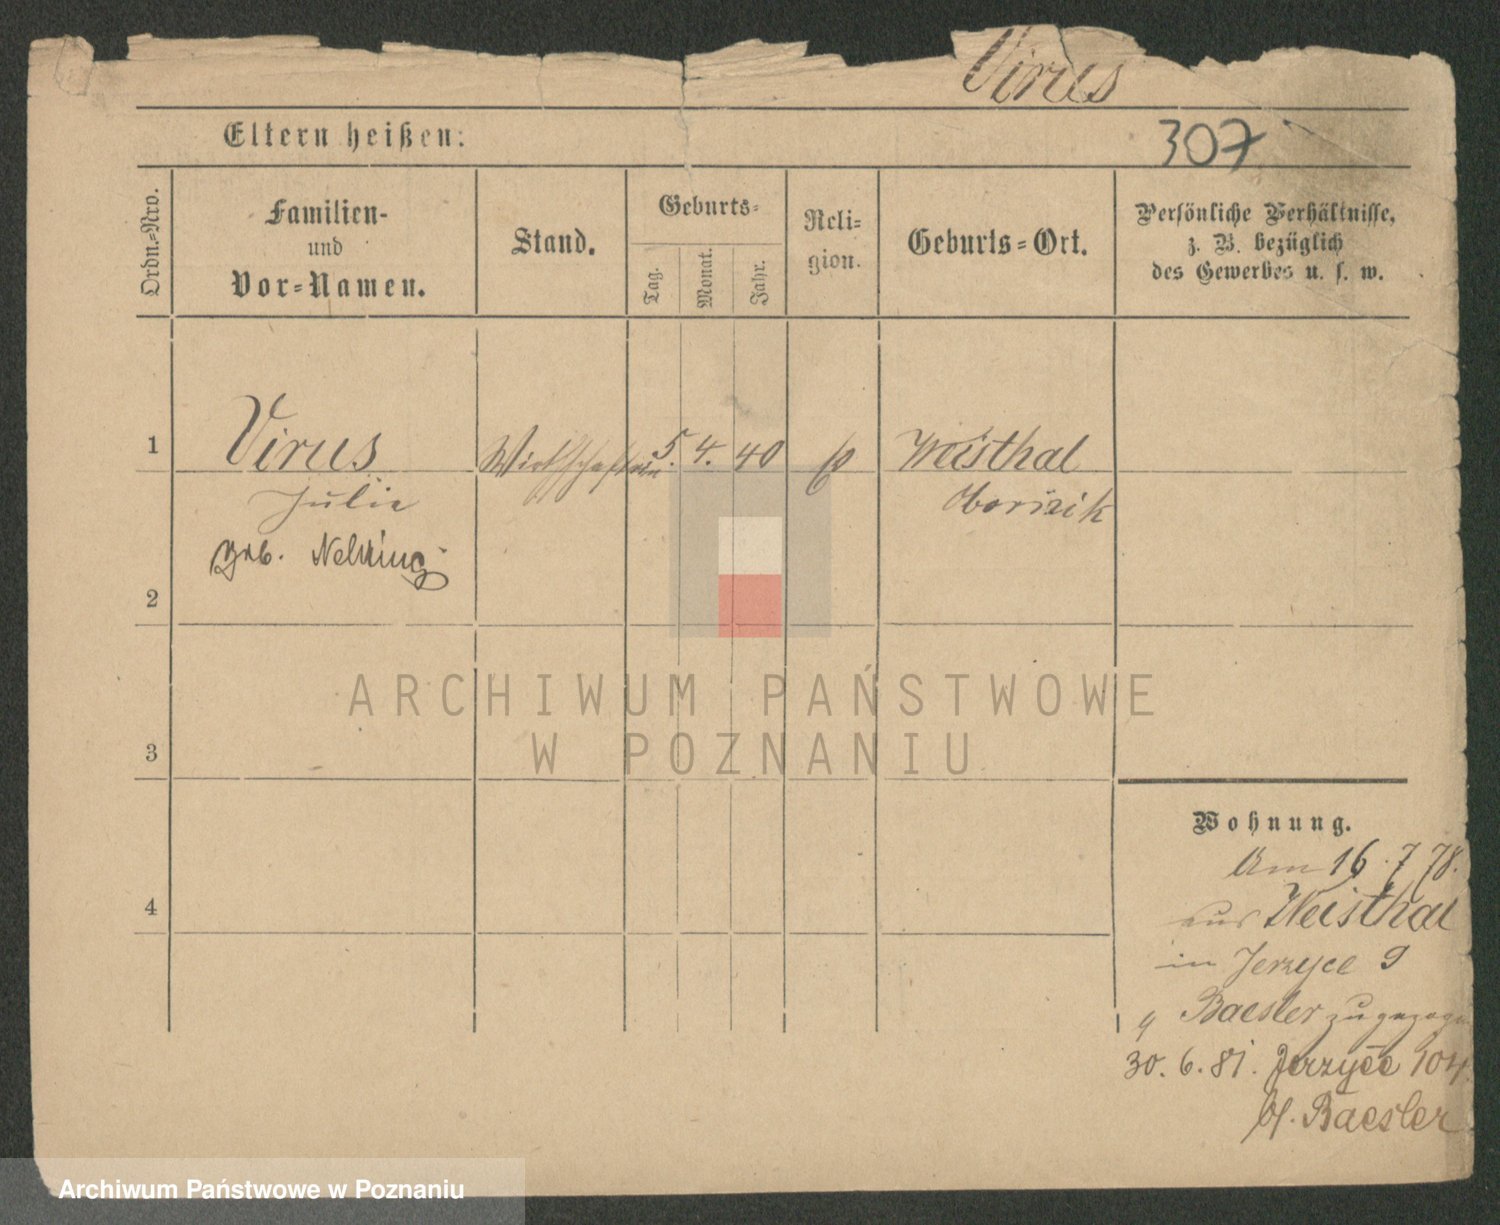 Virus
Eltern heißen:
307
Ordn.-Nro.
Familien-
und
Vor-Namen.
Stand.
Geburts-
Tag.
Monat.
Jahr.
Reli-
gion.
Geburts-Ort.
Persönliche Verhältnisse,
z. B. bezüglich
des Gewerbes u. s. w.
1
Virus
Wirthschafterin
5.
4.
40
Weisthal
Julie
geb. Nehring
2
ARCHIWUM PAŃSTWOWE
W POZNANIU
3
Wohnung.
Am 16.7 78.
4
aus Weisthal
in Jerzyce 9
Baesler zugezogen
30. 6. 81. Jerzyce 104
bf. Baesler
Archiwum Państwowe w Poznaniu